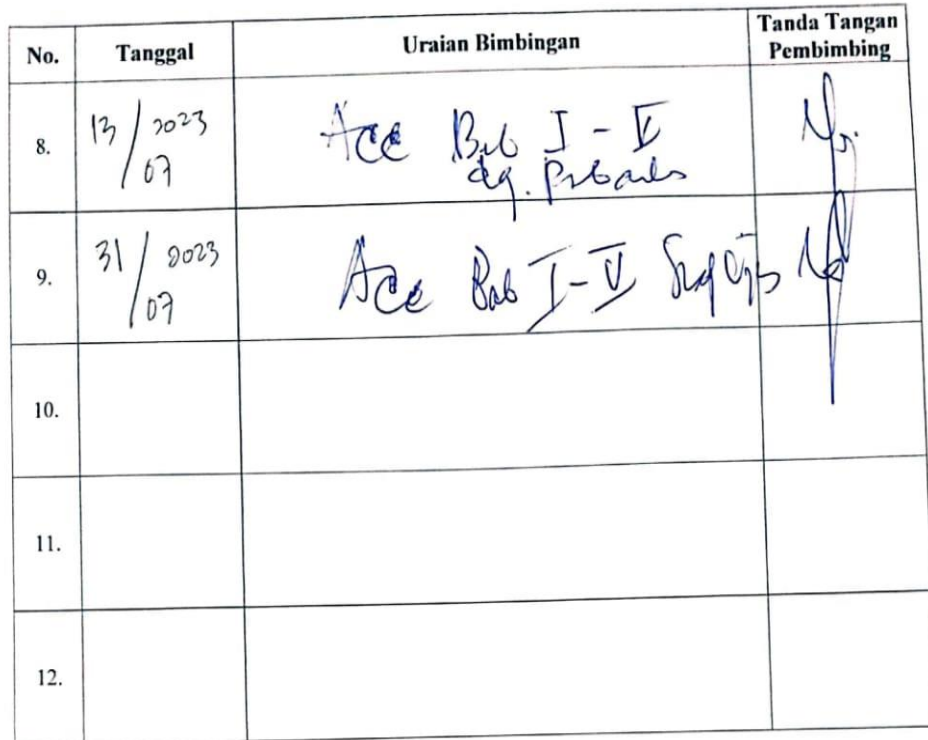 No. Tanggal Uraian Bimbingan Tanda Tangan
Pembimbing
8. 13/07 2023 Acc Bab I - V
dg. Perbaikan
9. 31/07 2023 Acc Bab I - V Siap Uji
10.
11.
12.